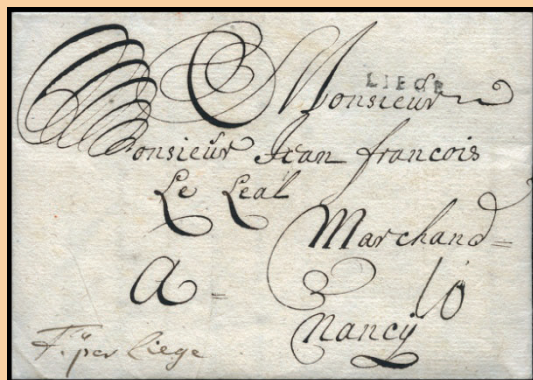 LIEGE
Monsieur
Monsieur Jean francois
Le Leal
Marchand=
A=
10
Nancÿ
per Liege